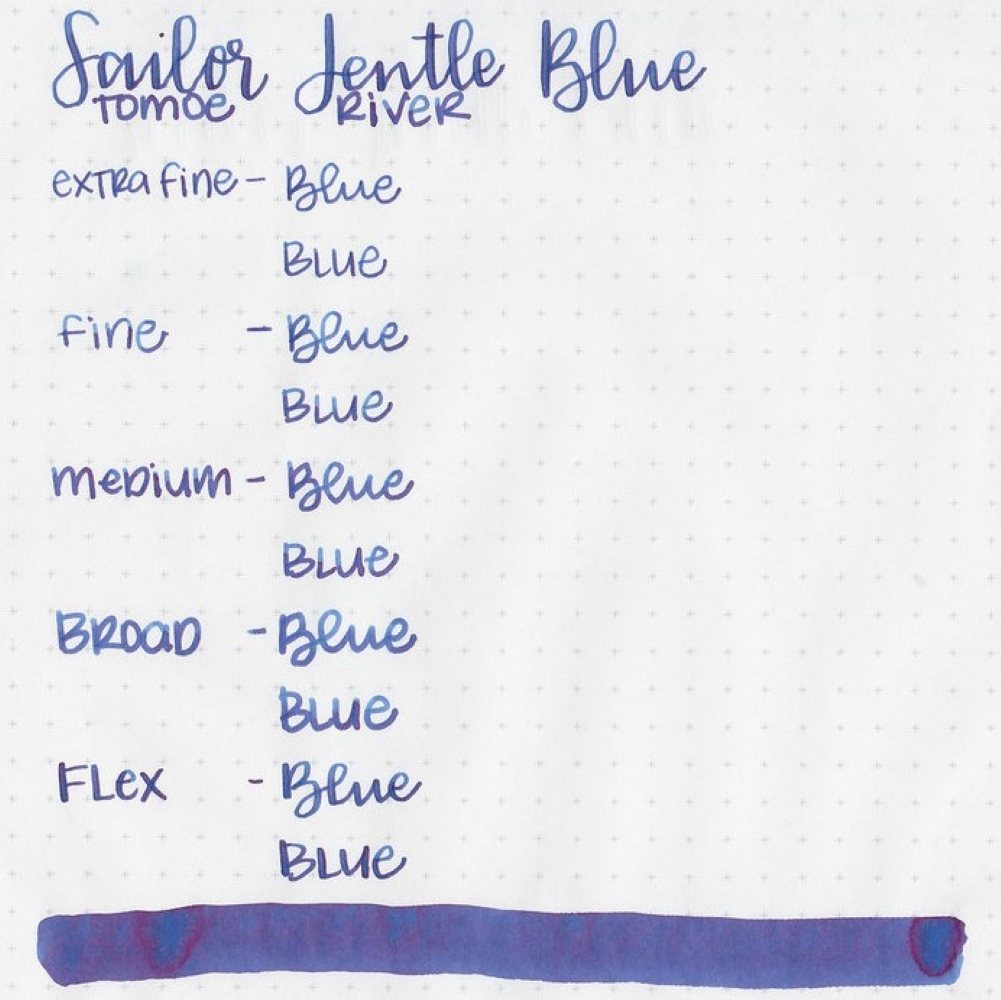 Sailor Jentle Blue
Tomoe River
extra fine - Blue
Blue
fine - Blue
Blue
medium - Blue
Blue
Broad - Blue
Blue
Flex - Blue
Blue